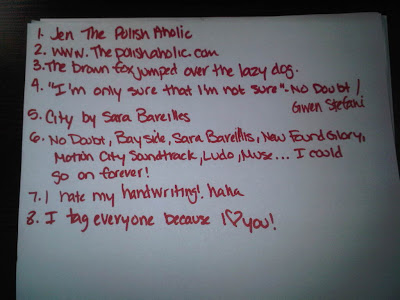 1. Jen The Polish Aholic
2. www.Thepolishaholic.com
3. The brown fox jumped over the lazy dog.
4. "I'm only sure that I'm not sure" - No Doubt /
Gwen Stefani
5. City by Sara Bareilles
6. No Doubt, Bayside, Sara Bareillis, New Found Glory,
Motion City Soundtrack, Ludo, Muse... I could
go on forever!
7. I hate my handwriting! haha
8. I tag everyone because I ♡ you!